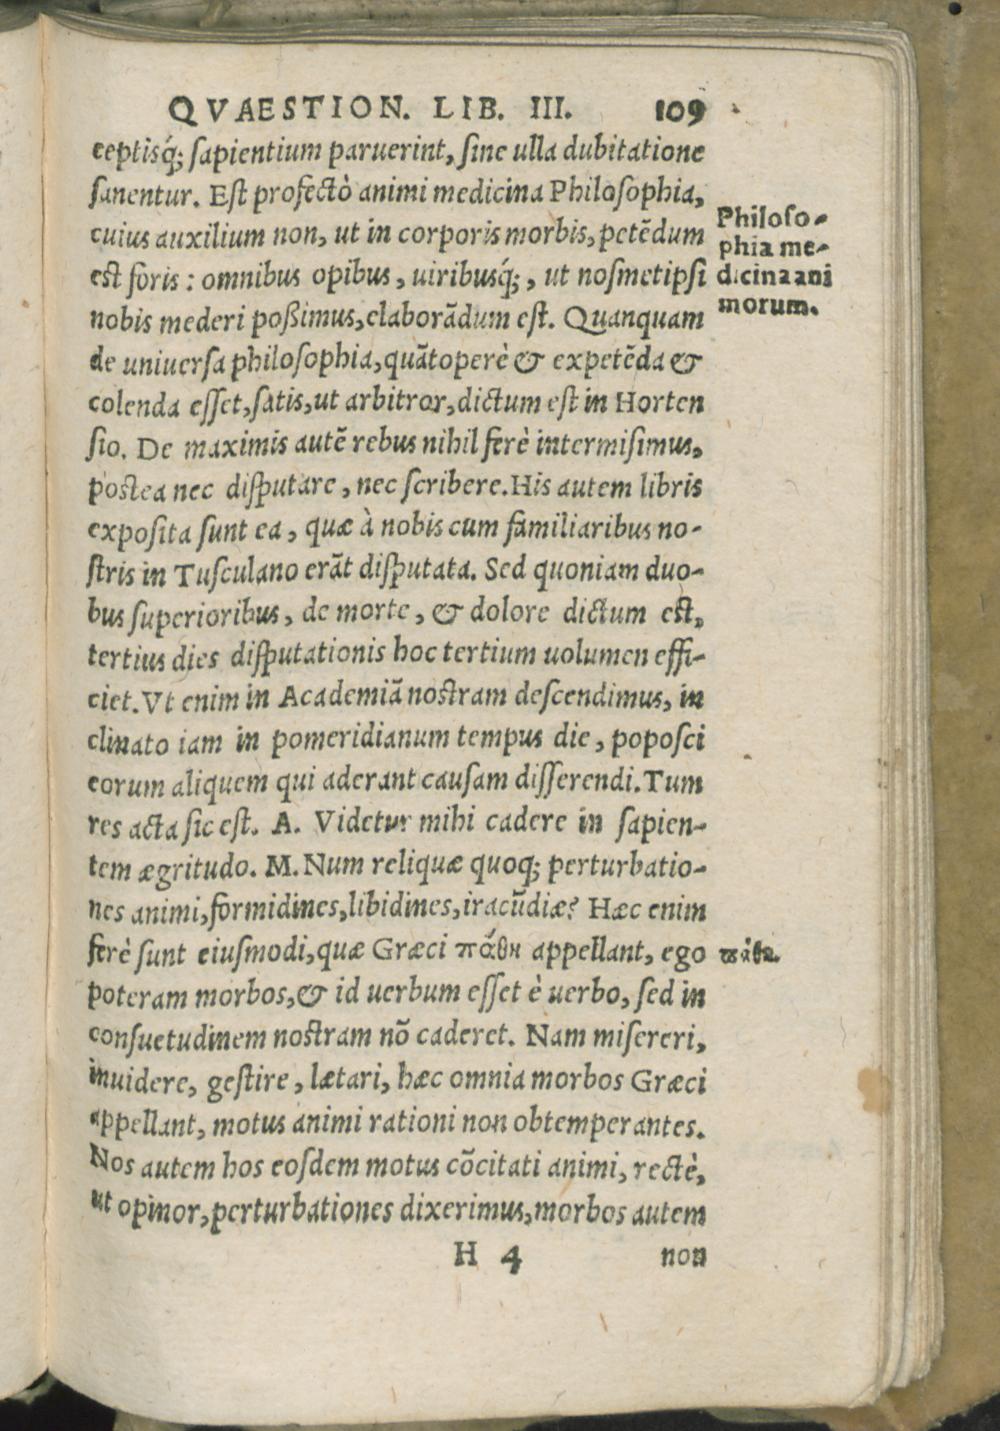 QVAESTION. LIB. III. 109
ceptisq́; sapientium paruerint, sine ulla dubitatione
sanentur. Est profectò animi medicina Philosophia,
cuius auxilium non, ut in corporis morbis, petẽdum
est foris: omnibus opibus, uiribusq́;, ut nosmetipsi
nobis mederi poßimus, elaborãdum est. Quanquam
de uniuersa philosophia, quãtoperè & expetẽda &
colenda esset, satis, ut arbitror, dictum est in Horten
sio. De maximis autẽ rebus nihil ferè intermisimus,
postea nec disputare, nec scribere. His autem libris
exposita sunt ea, quæ à nobis cum familiaribus no-
stris in Tusculano erãt disputata. Sed quoniam duo-
bus superioribus, de morte, & dolore dictum est,
tertius dies disputationis hoc tertium uolumen effi-
ciet. Vt enim in Academiã nostram descendimus, in
clinato iam in pomeridianum tempus die, poposci
eorum aliquem qui aderant causam disserendi. Tum
res acta sic est. A. Videtur mihi cadere in sapien-
tem ægritudo. M. Num reliquæ quoq; perturbatio-
nes animi, formidines, libidines, iracũdiæ? Hæc enim
ferè sunt eiusmodi, quæ Græci πάθη appellant, ego
poteram morbos, & id uerbum esset è uerbo, sed in
consuetudinem nostram nõ caderet. Nam misereri,
inuidere, gestire, lætari, hæc omnia morbos Græci
appellant, motus animi rationi non obtemperantes.
Nos autem hos eosdem motus cõcitati animi, rectè,
ut opinor, perturbationes dixerimus, morbos autem
H 4 non
Philoso-
phia me-
dicina ani
morum.
πάθη.